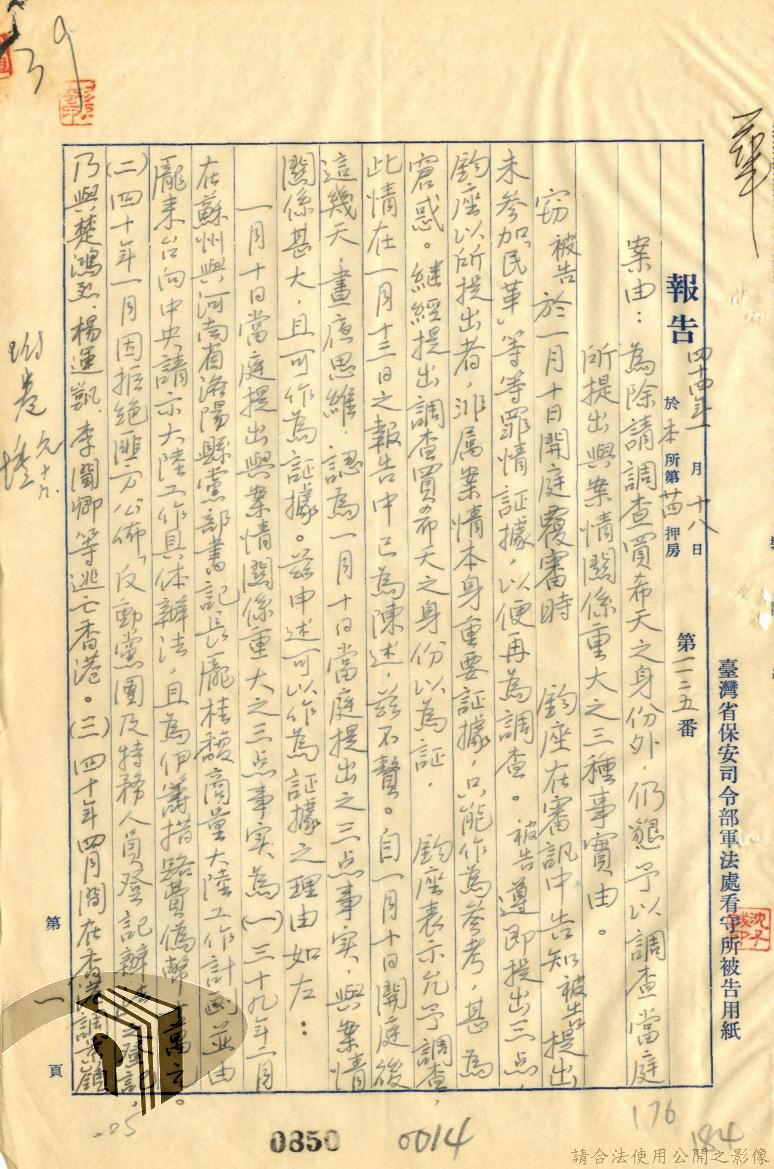 臺灣省保安司令部軍法處看守所被告用紙
報告 四十四年一月十八日 於本所第 押房 第一二五番
案由：為除請調查賈希天之身份外，仍懇予以調查當庭
所提出與案情關係重大之三種事實由。
竊被告於一月十日開庭覆審時 鈞座在審訊中告知被告提出
未參加「民革」等等罪情証據，以便再為調查。被告遵即提出三点，
鈞座以所提出者，非属案情本身重要証據，只能作為參考，甚為
窘惑。継經提出調查賈希天之身份以為証， 鈞座表示允予調查，
此情在一月十三日之報告中已為陳述，茲不贅。自一月十日開庭後
這幾天，晝夜思維，認為一月十日當庭提出之三点事实，與案情
關係甚大，且可作為証據。茲申述可以作為証據之理由如左：
一月十日當庭提出與案情關係重大之三点事实為(一)三十九年二月
在蘇州與河南省濬陽縣黨部書記長龐桂馥商量大陸工作計画並由
龐来台向中央請示大陸工作具体辦法，且為伊籌措路費偽幣 萬元。
(二)四十年一月因拒絕匪方公佈「反動黨團及特務人員登記辦法」之登記，
乃與楚鴻烈、楊運凱、李聞卿等逃亡香港。(三)四十年四月間在香港
第一頁
附卷
39
176
184
0850
0014
25
請合法使用公開之影像